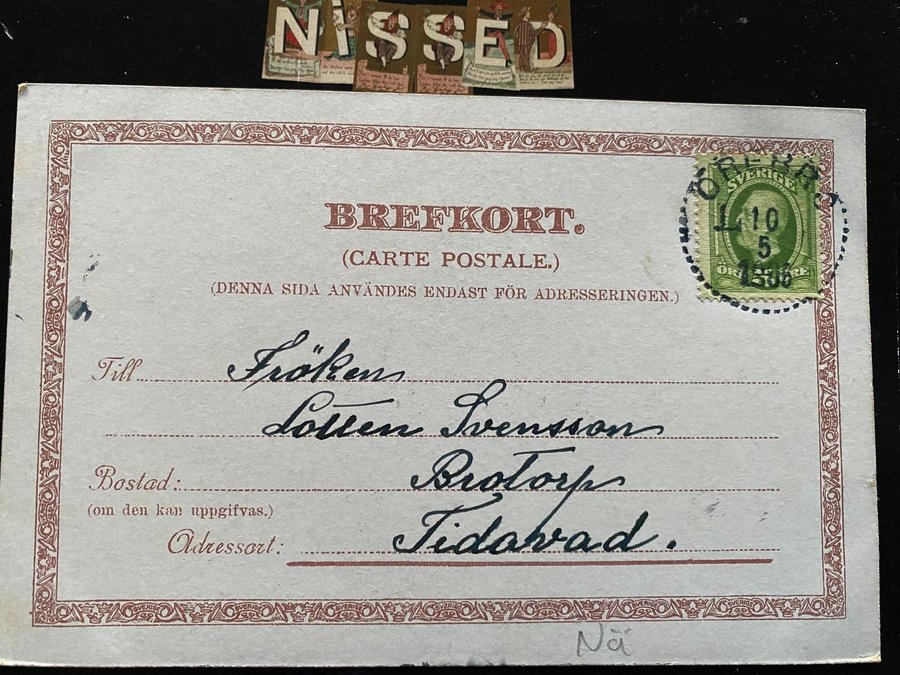 NISSED
BREFKORT.
(CARTE POSTALE.)
(DENNA SIDA ANVÄNDES ENDAST FÖR ADRESSERINGEN.)
SVERIGE
ÖREBRO
10
5
Till
Fröken
Lotten Svensson
Bostad:
Brotorp
(om den kan uppgifvas.)
Adressort:
Tidavad.
Nä